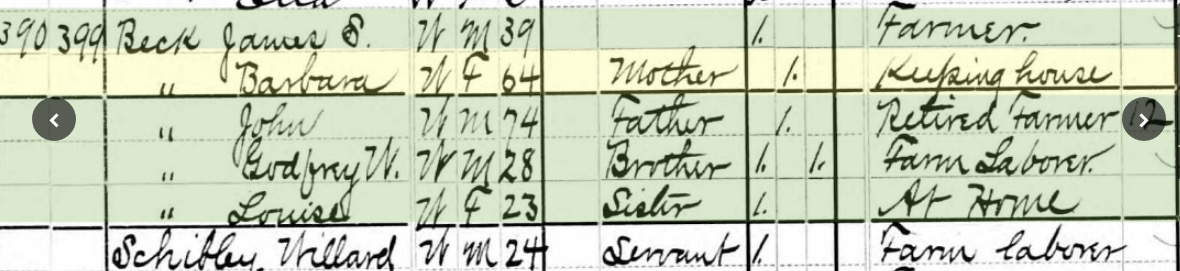 390 399 Beck James S. W M 39 1. Farmer.
" Barbara W F 64 Mother 1. Keeping house
" John W M 74 Father 1. Retired Farmer 12
" Godfrey W. W M 28 Brother 1. 1. Farm Laborer.
" Louise W F 23 Sister 1. At Home
Schibley, Willard W M 24 Servant 1. Farm laborer